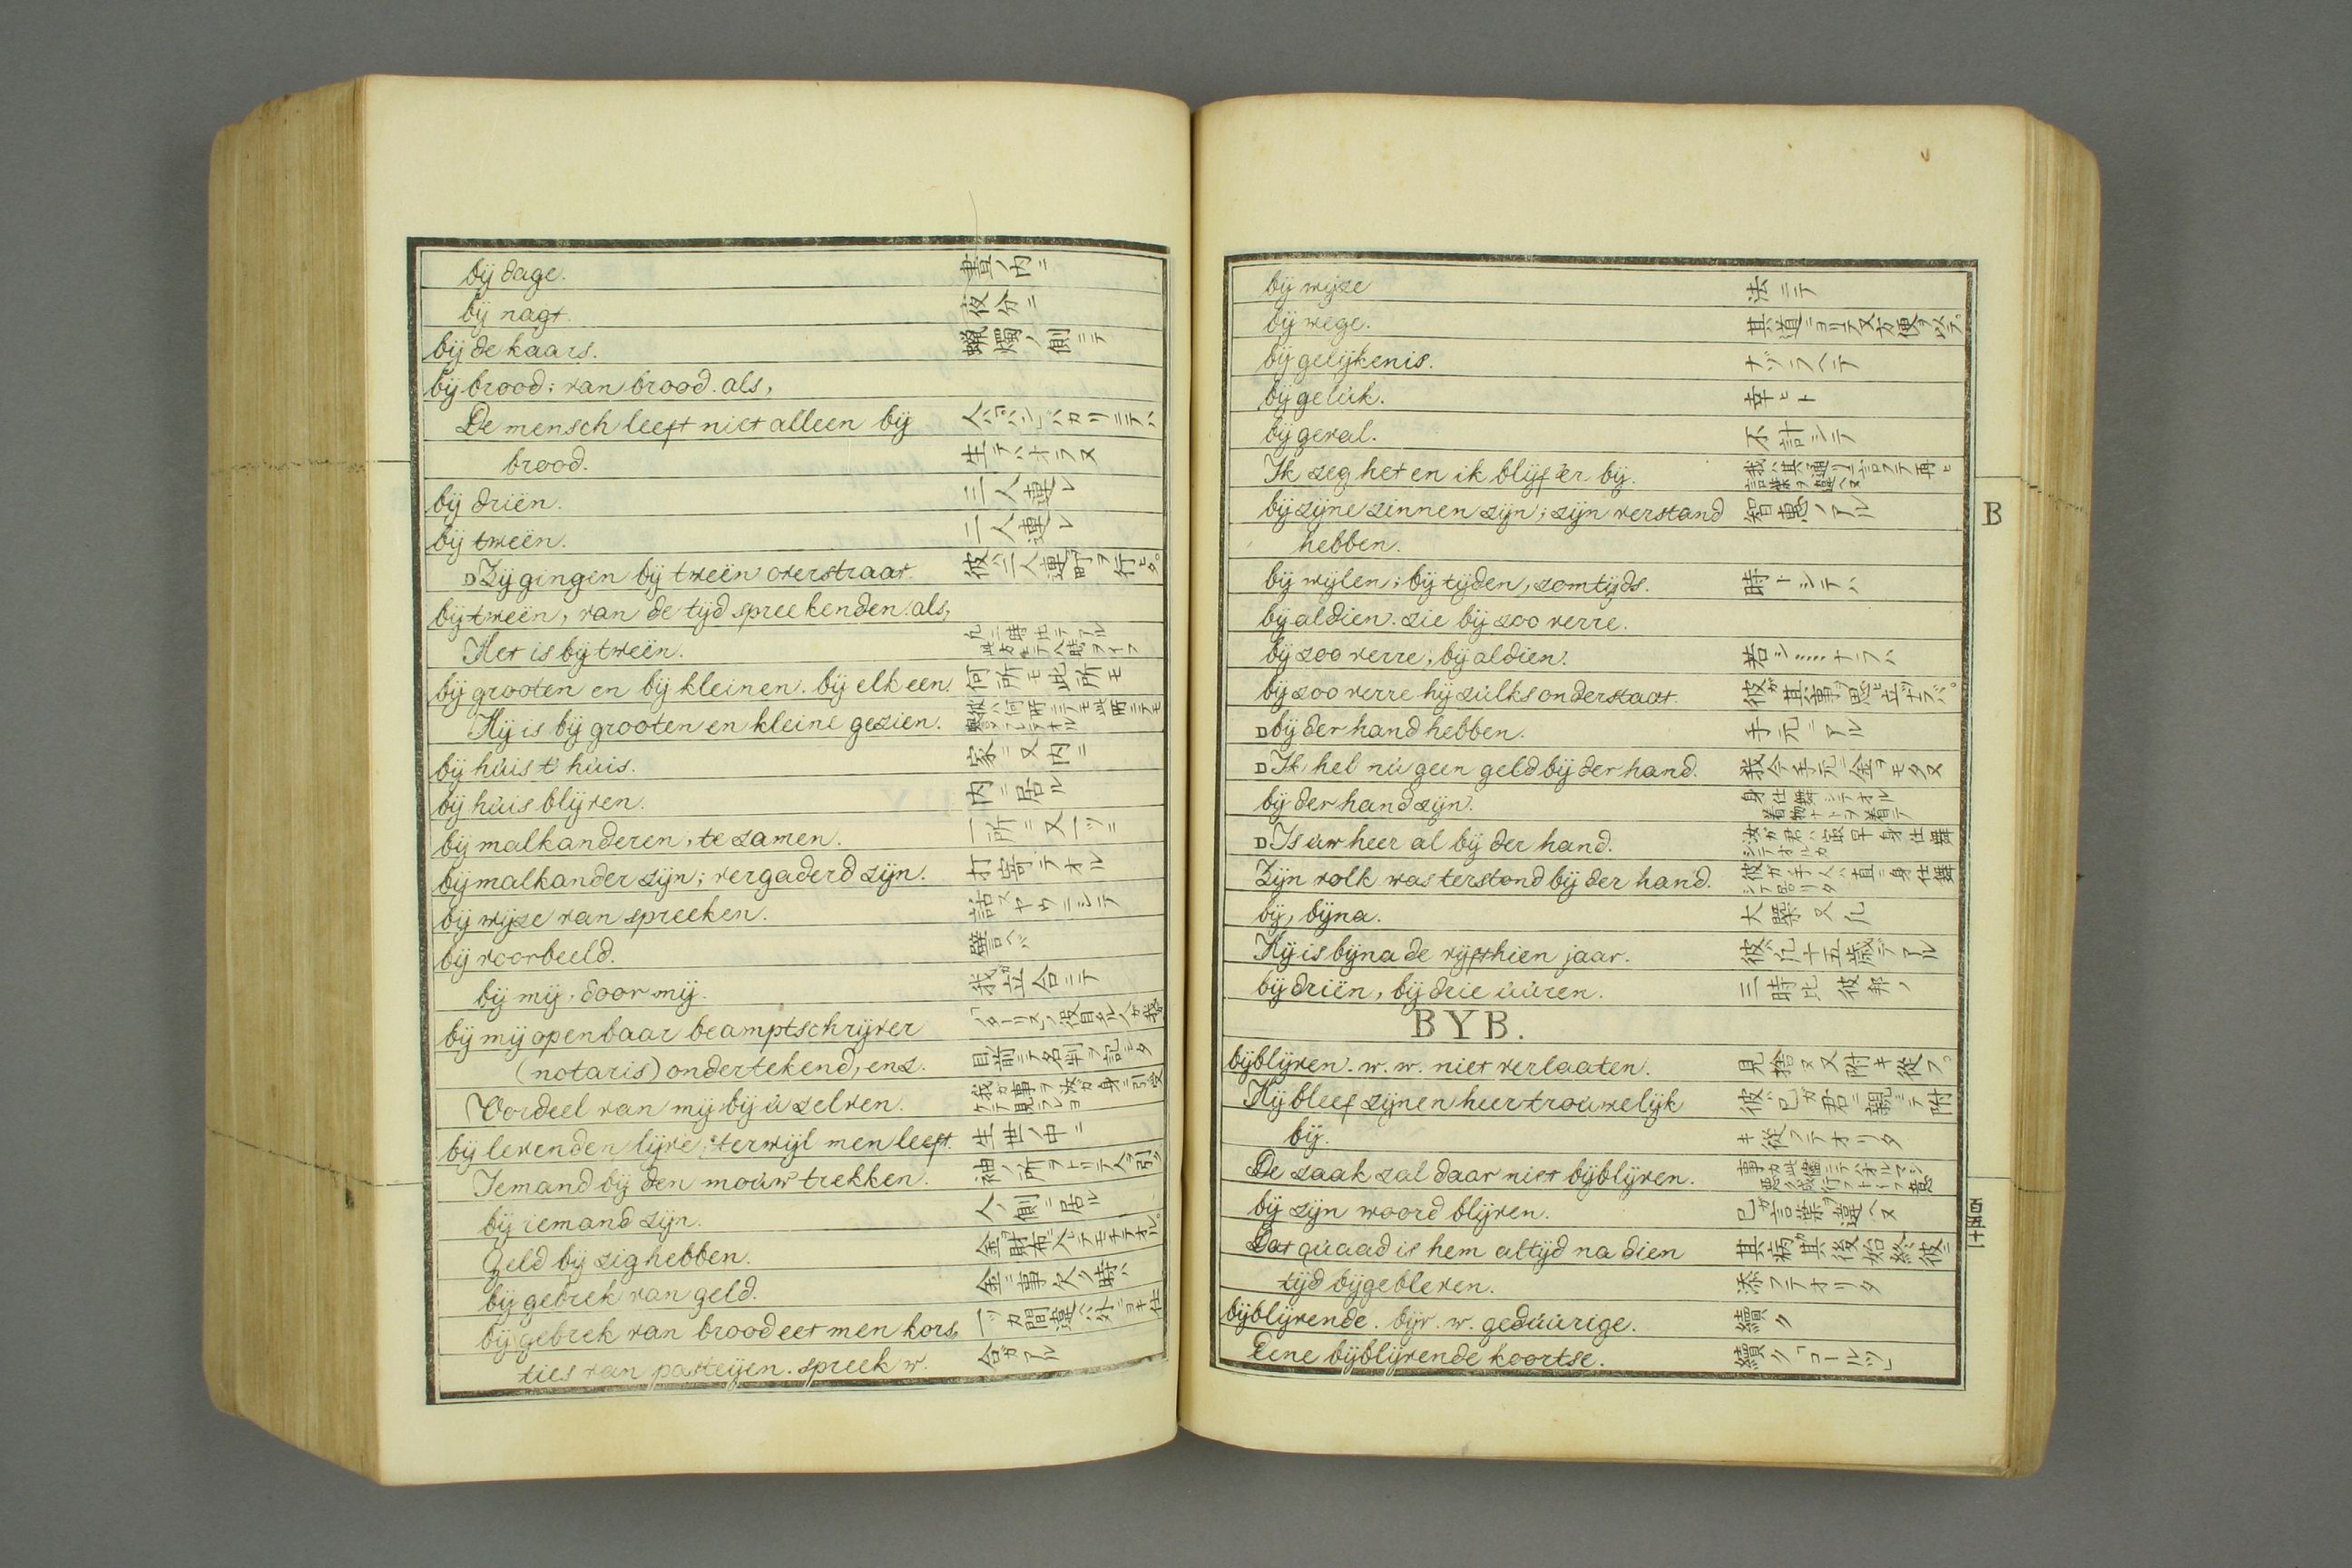 bij dage. 晝ノ内ニ
bij nagt. 夜分ニ
bij de kaars. 蝋燭ノ側ニテ
bij brood; van brood. als,
De mensch leeft niet alleen bij
brood. 生テハオラヌ
bij driën. 三人連レ
bij tweën. 二人連レ
DZij gingen bij tweën overstraat.
bij tweën, van de tijd spreekenden. als,
Het is bij tweën.
bij grooten en bij kleinen. bij elk een. 何所モ此所モ
Hij is bij grooten en kleine gezien.
bij húis t' húis. 家ニ又内ニ
bij húis blijven. 内ニ居ル
bij malkanderen, te zamen. 一所ニ又一ツニ
bij malkander zijn; vergaderd zijn. 打寄テオル
bij wijze van spreeken. 話スヤウニシテ
bij voorbeeld. 譬言ヘバ
bij mij, door mij. 我ガ立合ニテ
bij mij openbaar beamptschrijver
(notaris) ondertekend, enz. 目前ニテ名判ヲ記シタ
Oordeel van mij bij ú zelven.
bij levenden lijve; terwijl men leeft. 生世ノ中ニ
Iemand bij den moúw trekken. 袖ノ所ヲトリテ人ヲ引ク
bij iemand zijn. 人ノ側ニ居ル
Geld bij zig hebben.
bij gebrek van geld. 金ニ事欠ク時ハ
bij gebrek van brood eet men kors,
ties van pasteijen. spreek w. 合ガアル
bij wijze 法ニテ
bij wege. 其道ニヨリテ又方便ヲ以テ。
bij gelijkenis. ナゾラヘテ
bij gelúk. 幸ヒト
bij geval. 不計シテ
Ik zeg het en ik blijf 'er bij.
bij zijne zinnen zijn; zijn verstand 智惠ノアル
hebben.
bij wijlen; bij tijden, somtijds. 時トシテハ
bij aldien. zie bij zoo verre.
bij zoo verre, bij aldien. 若シ……ナラハ
bij zoo verre hij zúlks onderstaat. 彼ガ其事ヲ思ヒ立ツナラバ。
Dbij der hand hebben. 手元ニアル
DIk hel nú geen geld bij der hand. 我今手元ニ金ヲモタヌ
bij der hand zijn. 身仕舞シテオル
DIs úw heer al bij der hand. 汝ガ君ハ最早身仕舞
シテオルカ
Zijn volk was terstond bij der hand. 彼ガ手人ハ直ニ身仕舞
シテ居リタ
bij, bijna. 大槩又凢
Hij is bijna de vijfthien jaar. 彼ハ凢十五歳デアル
bij driën, bij drie úúren. 三時比 彼邦ノ
BYB.
bijblijven. w. w. niet verlaaten. 見捨ヌ又附キ從フ。
Hij bleef zijnen heer troúwelijk 彼ハ己ガ君ニ親シテ附
bij. キ從フテオリタ
De zaak zal daar niet bijblijven.
bij zijn woord blijven. 己ガ言葉ヲ違ヘヌ
Dat qúaad is hem altijd na dien 其病ガ其後始終彼ニ
tijd bijgebleven. 添フテオリタ
bijblijvende. bijv. w. gedúúrige. 續ク
Eene bijblijvende koortse. 續ク「コールツ」
B
百五十一